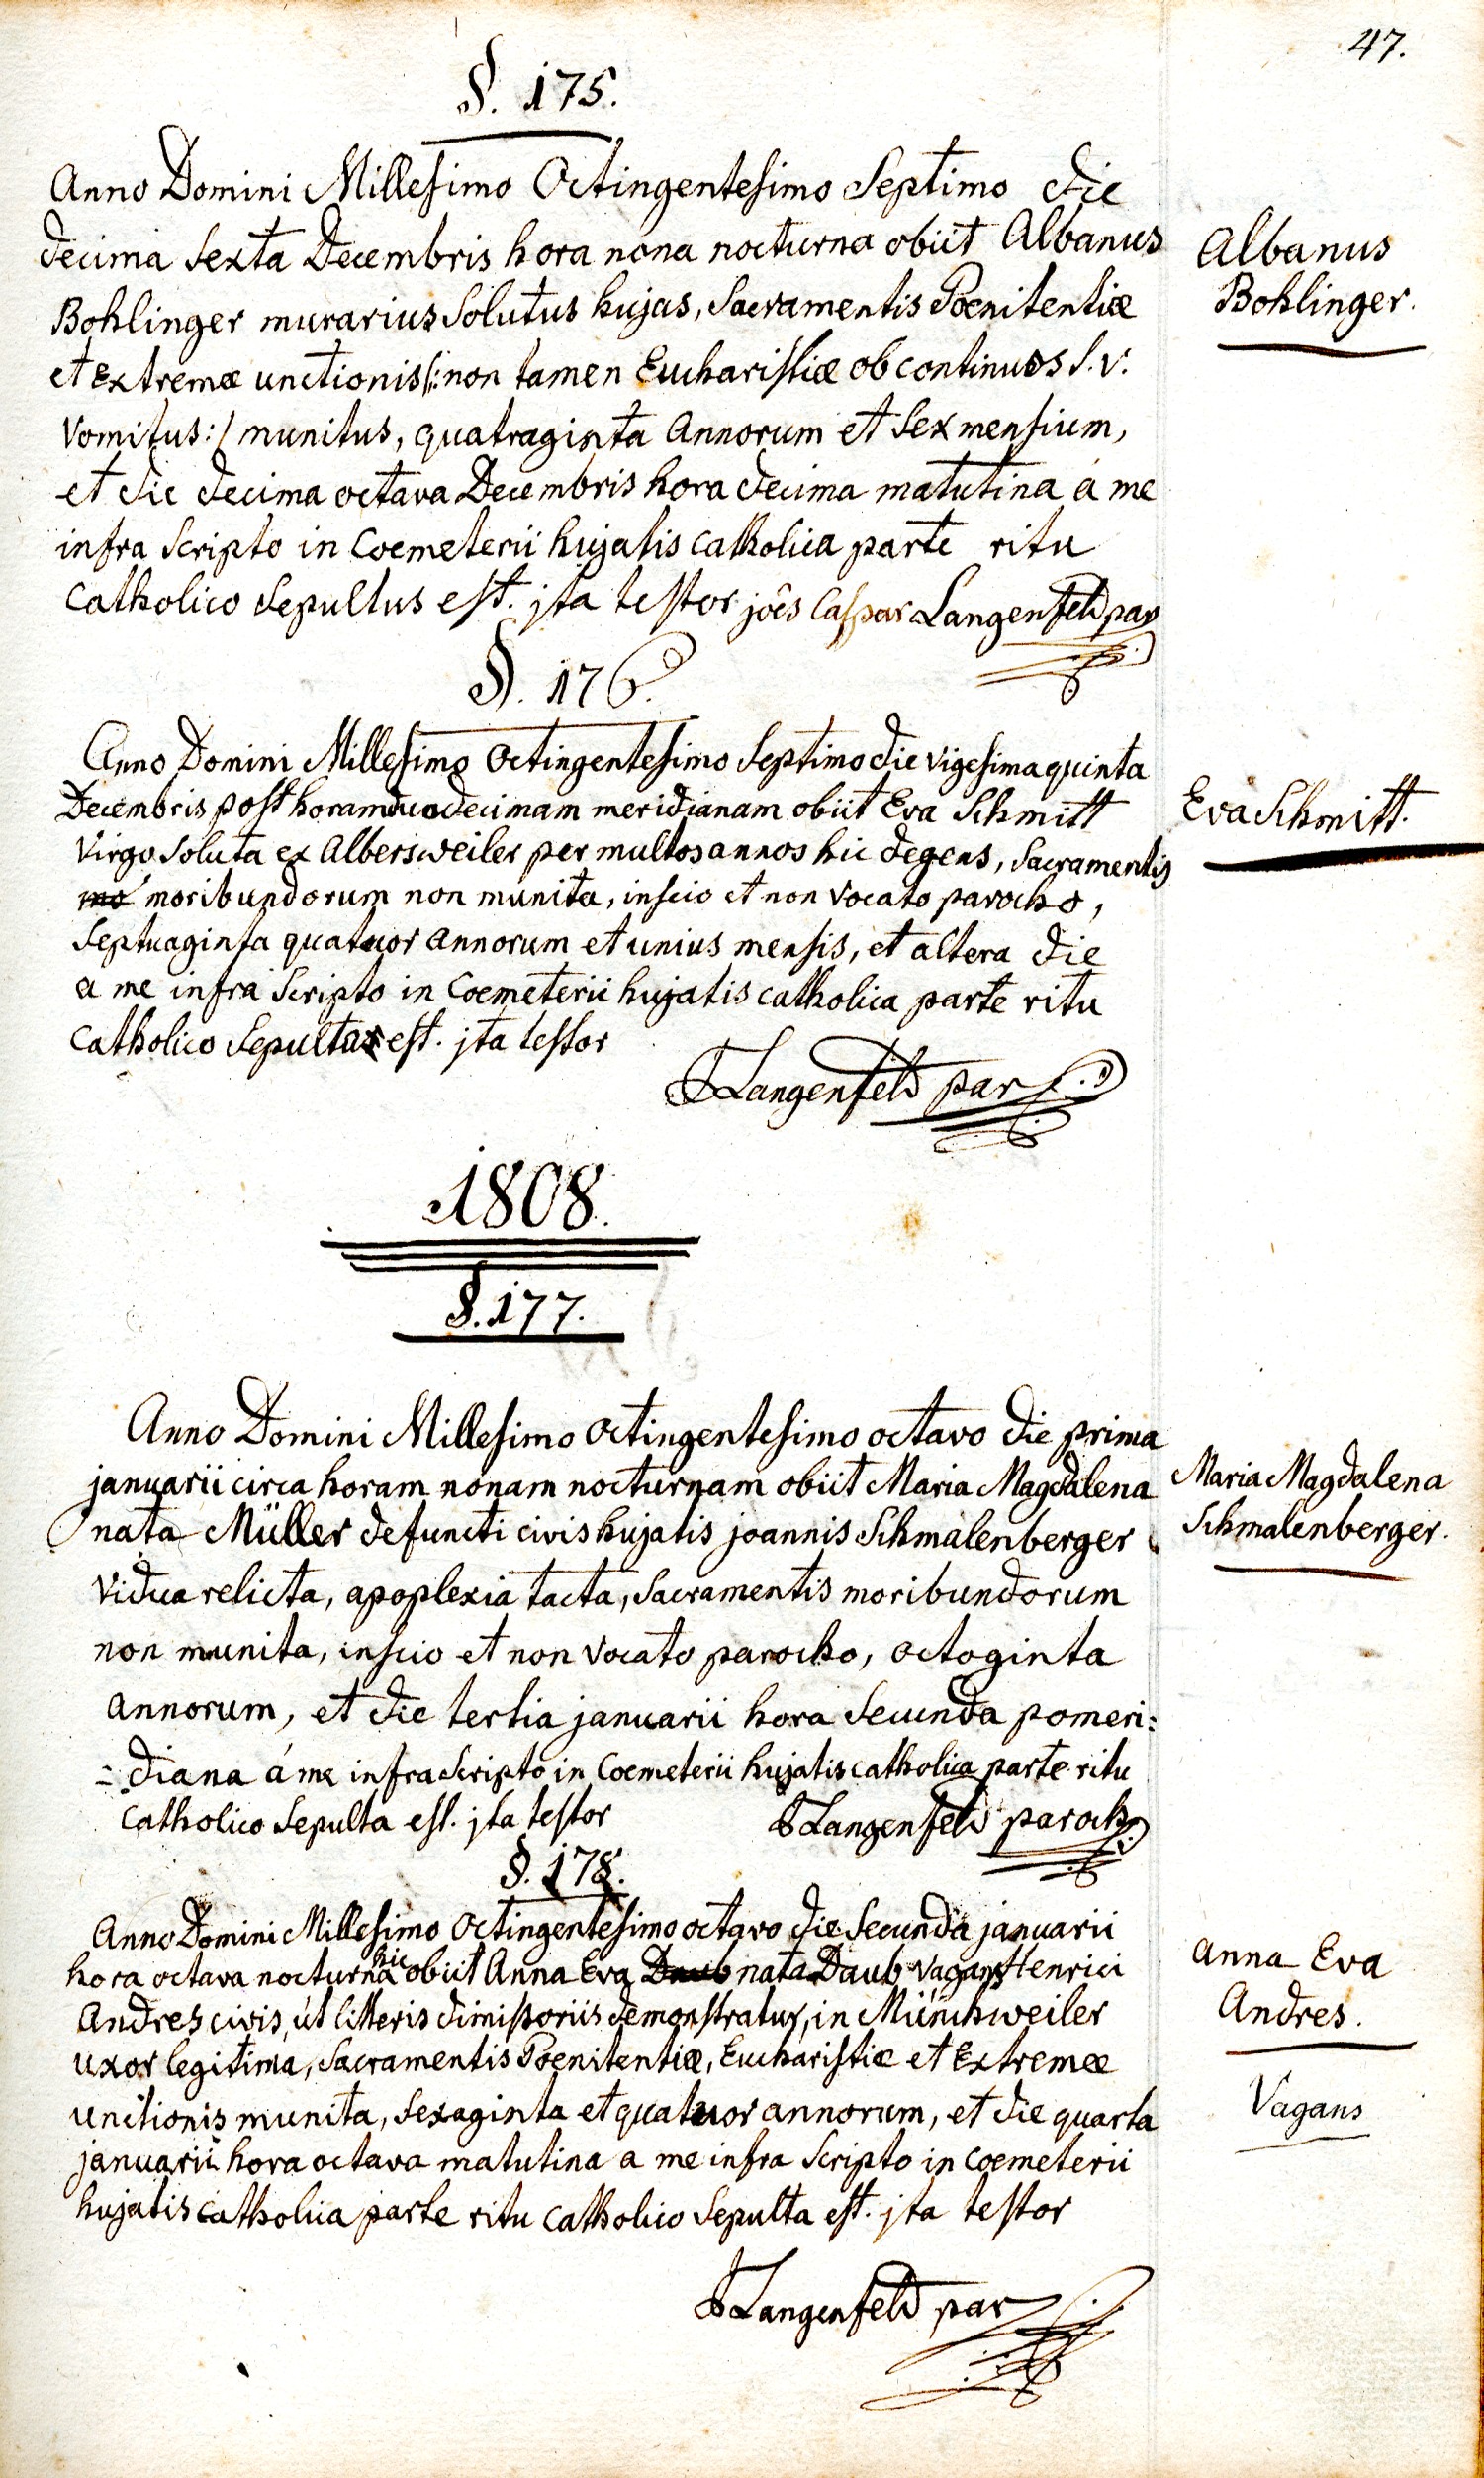 47.
§. 175.
Anno Domini Millesimo Octingentesimo Septimo die
decima sexta Decembris hora nona nocturna obiit Albanus
Bohlinger murarius solutus hujas, Sacramentis Poenitentiæ
et Extremæ unctionis /: non tamen Eucharistiæ ob continuos S. v.
vomitus :/ munitus, quatraginta Annorum et sex mensium,
et die decima octava Decembris hora decima matutina á me
infra scripto in Coemeterii hujatis catholica parte ritu
catholico sepultus est. jta testor joês Caspar Langenfeld par
Albanus
Bohlinger.
§. 176.
Anno Domini Millesimo Octingentesimo Septimo die vigesima quinta
Decembris post horam duodecimam meridianam obiit Eva Schmitt
virgo soluta ex Albersweiler per multos annos hic degens, Sacramentis
mo moribundorum non munita, inscio et non vocato parocho,
septuaginta quatuor annorum et unius mensis, et altera die
a me infra scripto in Coemeterii hujatis catholica parte ritu
catholico sepulta est. jta testor
Langenfeld par
Eva Schmitt.
1808.
§. 177.
Anno Domini Millesimo Octingentesimo octavo die prima
januarii circa horam nonam nocturnam obiit Maria Magdalena
nata Müller defuncti civis hujatis joannis Schmalenberger
vidua relicta, apoplexia tacta, Sacramentis moribundorum
non munita, inscio et non vocato parocho, octoginta
annorum, et die tertia januarii hora secunda pomeri=
=diana á me infra scripto in Coemeterii hujatis catholica parte ritu
catholico sepulta est. jta testor Langenfeld paroch
Maria Magdalena
Schmalenberger.
§. 178.
Anno Domini Millesimo Octingentesimo octavo die secunda januarii
hora octava nocturna hic obiit Anna Eva Daub nata Daub vagans Henrici
Andres civis, út litteris dimissoriis demonstratur, in Münchweiler
uxor legitima, Sacramentis Poenitentiæ, Eucharistiæ et Extremæ
unctionis munita, sexaginta et quatuor annorum, et die quarta
januarii hora octava matutina a me infra scripto in coemeterii
hujatis catholica parte ritu catholico sepulta est. jta testor
Langenfeld par
Anna Eva
Andres.
Vagans